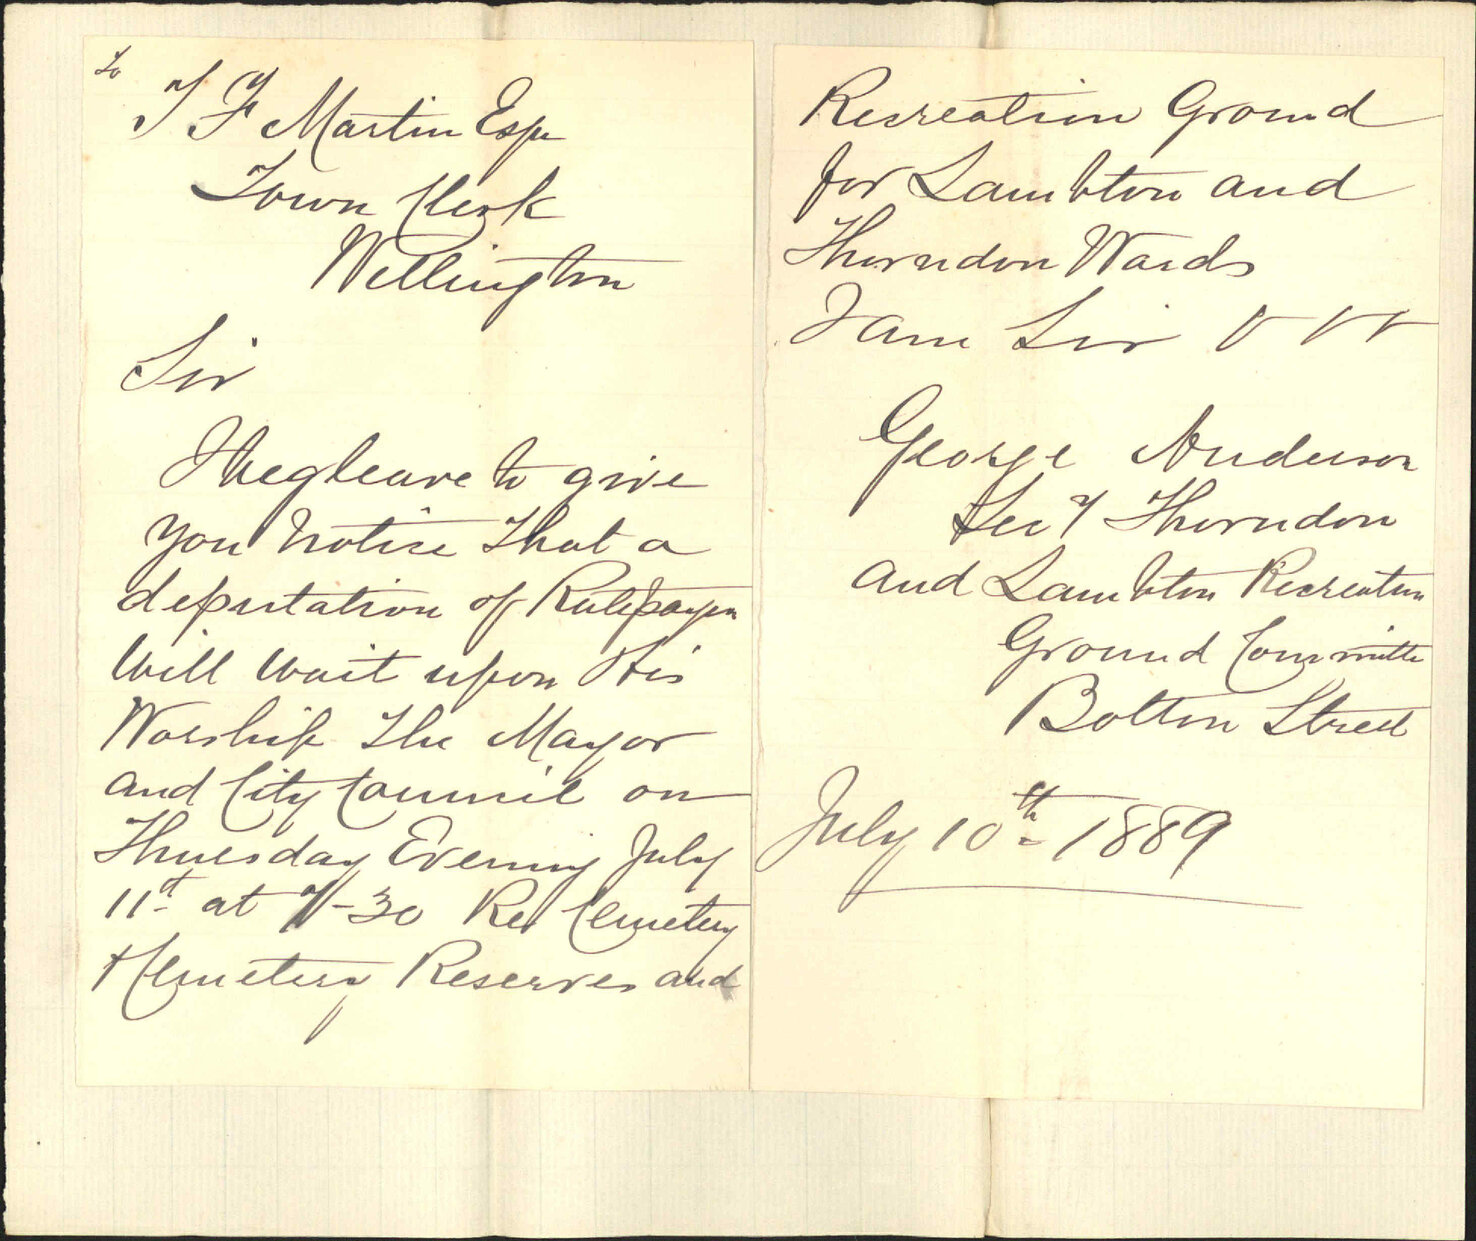 To
J F Martin Esqr
Town Clerk
Wellington
Sir
I beg leave to give
you notice that a
deputation of Ratepayers
will wait upon His
Worship the Mayor
and City Council on
Thursday Evening July
11th at 7-30 Re Cemetery
Cemetery Reserves and
Recreation Ground
for Lambton and
Thorndon Wards
I am Sir
George Anderson
Secy Thorndon
and Lambton Recreation
Ground Committee
Bolton Street
July 10th 1889